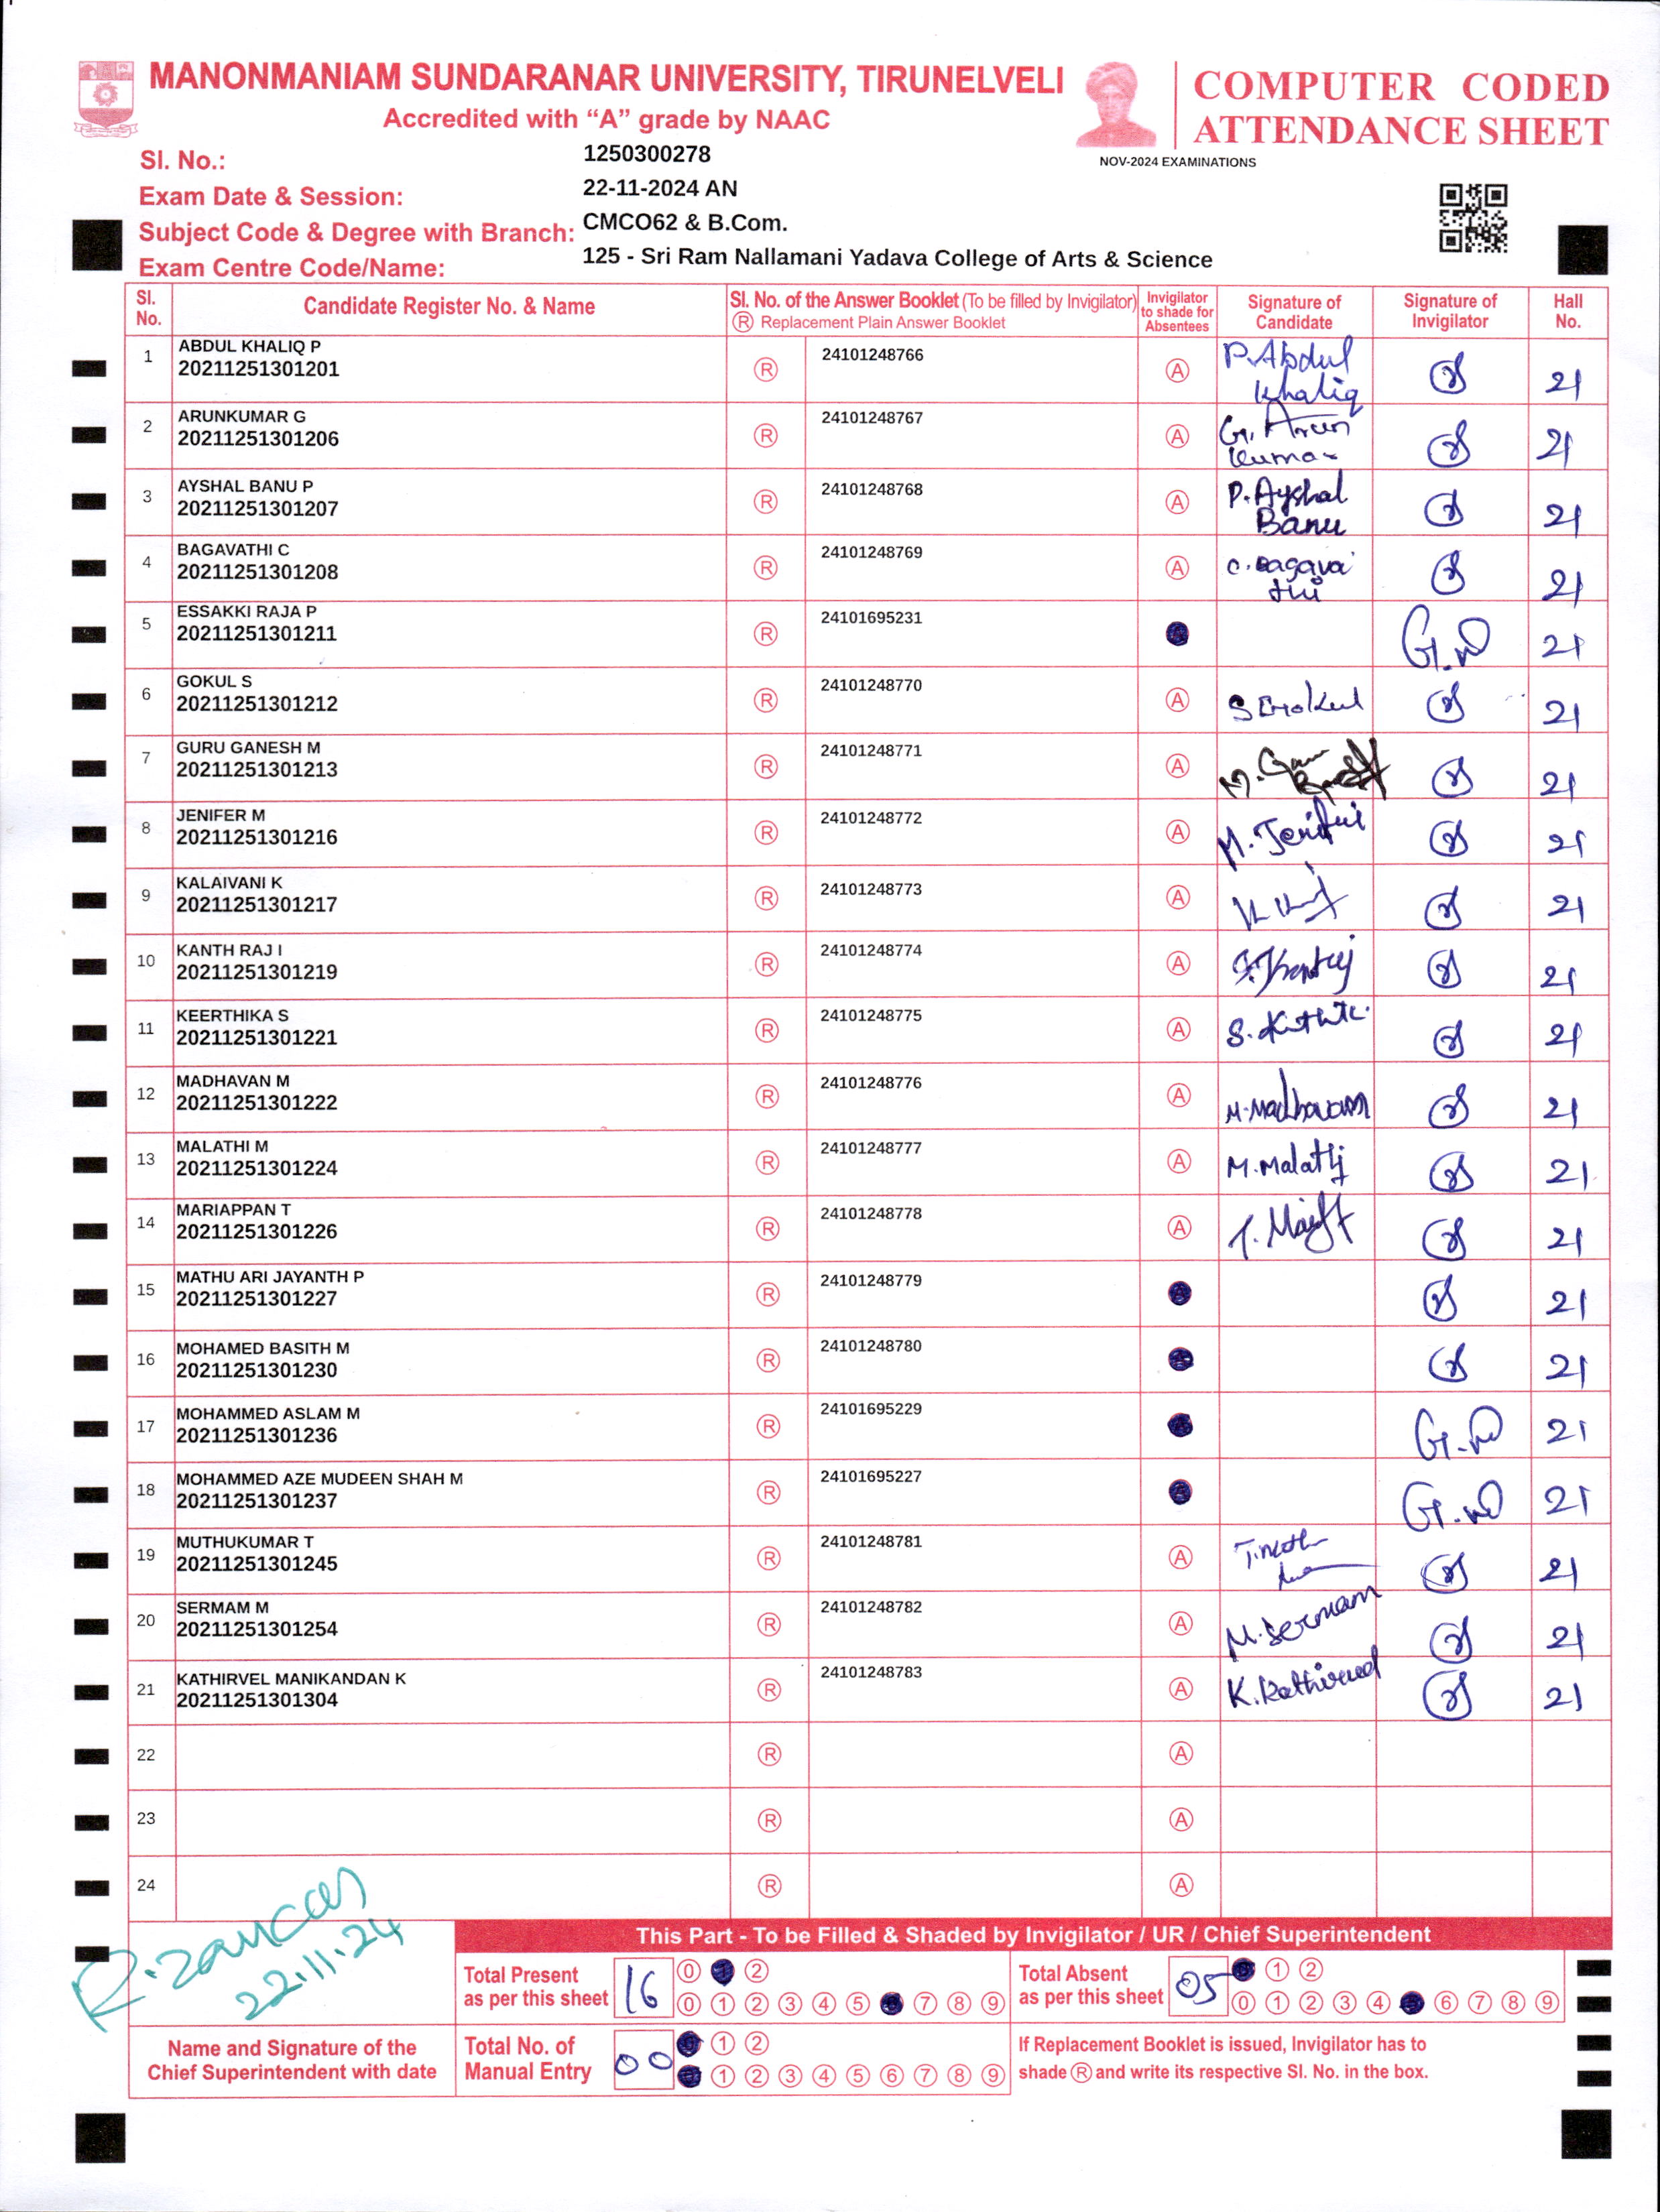 MANONMANIAM SUNDARANAR UNIVERSITY, TIRUNELVELI
Accredited with “A” grade by NAAC
COMPUTER CODED
ATTENDANCE SHEET
NOV-2024 EXAMINATIONS
Sl. No.: 1250300278
Exam Date & Session: 22-11-2024 AN
Subject Code & Degree with Branch: CMCO62 & B.Com.
Exam Centre Code/Name: 125 - Sri Ram Nallamani Yadava College of Arts & Science
Sl. No. Candidate Register No. & Name Sl. No. of the Answer Booklet (To be filled by Invigilator) Ⓡ Replacement Plain Answer Booklet Invigilator to shade for Absentees Signature of Candidate Signature of Invigilator Hall No.
1 ABDUL KHALIQ P 20211251301201 Ⓡ 24101248766 Ⓐ P.Abdul Khaliq 21
2 ARUNKUMAR G 20211251301206 Ⓡ 24101248767 Ⓐ G. Arun Kumar 21
3 AYSHAL BANU P 20211251301207 Ⓡ 24101248768 Ⓐ P.Ayshal Banu 21
4 BAGAVATHI C 20211251301208 Ⓡ 24101248769 Ⓐ C.Bagavathi 21
5 ESSAKKI RAJA P 20211251301211 Ⓡ 24101695231 21
6 GOKUL S 20211251301212 Ⓡ 24101248770 Ⓐ S Gokul 21
7 GURU GANESH M 20211251301213 Ⓡ 24101248771 Ⓐ 21
8 JENIFER M 20211251301216 Ⓡ 24101248772 Ⓐ M. Jenifer 21
9 KALAIVANI K 20211251301217 Ⓡ 24101248773 Ⓐ 21
10 KANTH RAJ I 20211251301219 Ⓡ 24101248774 Ⓐ 21
11 KEERTHIKA S 20211251301221 Ⓡ 24101248775 Ⓐ 21
12 MADHAVAN M 20211251301222 Ⓡ 24101248776 Ⓐ M.Madhavan 21
13 MALATHI M 20211251301224 Ⓡ 24101248777 Ⓐ M.Malathi 21
14 MARIAPPAN T 20211251301226 Ⓡ 24101248778 Ⓐ 21
15 MATHU ARI JAYANTH P 20211251301227 Ⓡ 24101248779 21
16 MOHAMED BASITH M 20211251301230 Ⓡ 24101248780 21
17 MOHAMMED ASLAM M 20211251301236 Ⓡ 24101695229 21
18 MOHAMMED AZE MUDEEN SHAH M 20211251301237 Ⓡ 24101695227 21
19 MUTHUKUMAR T 20211251301245 Ⓡ 24101248781 Ⓐ 21
20 SERMAM M 20211251301254 Ⓡ 24101248782 Ⓐ M.Sermam 21
21 KATHIRVEL MANIKANDAN K 20211251301304 Ⓡ 24101248783 Ⓐ K.Kathirvel 21
22 Ⓡ Ⓐ
23 Ⓡ Ⓐ
24 Ⓡ Ⓐ
22.11.24
Name and Signature of the
Chief Superintendent with date
This Part - To be Filled & Shaded by Invigilator / UR / Chief Superintendent
Total Present as per this sheet 16
0 2
0 1 2 3 4 5 7 8 9
Total Absent as per this sheet 05
1 2
0 1 2 3 4 6 7 8 9
Total No. of Manual Entry 00
1 2
1 2 3 4 5 6 7 8 9
If Replacement Booklet is issued, Invigilator has to
shade Ⓡ and write its respective Sl. No. in the box.